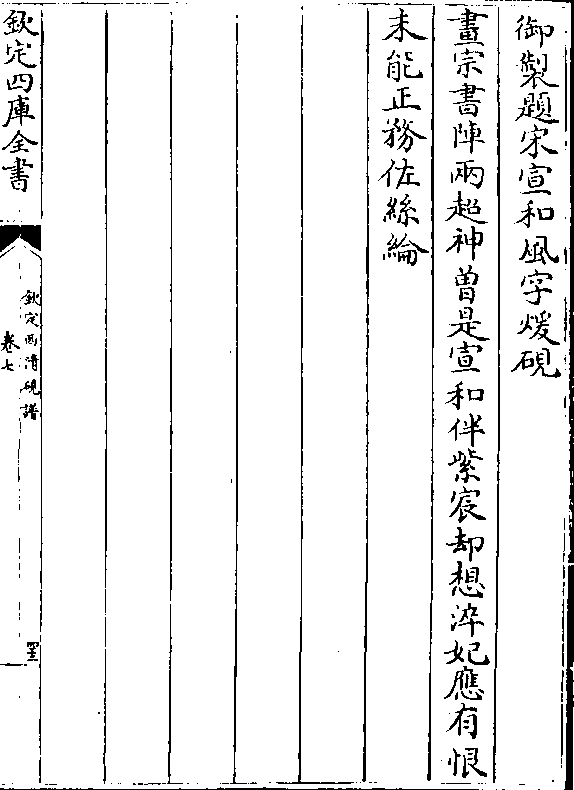 御製題宋宣和風字煖硯
畫宗書陣兩超神曽是宣和伴紫宸却想淬妃應有恨
未能正務佐絲綸
欽定四庫全書
欽定西清硯譜
卷七
罜